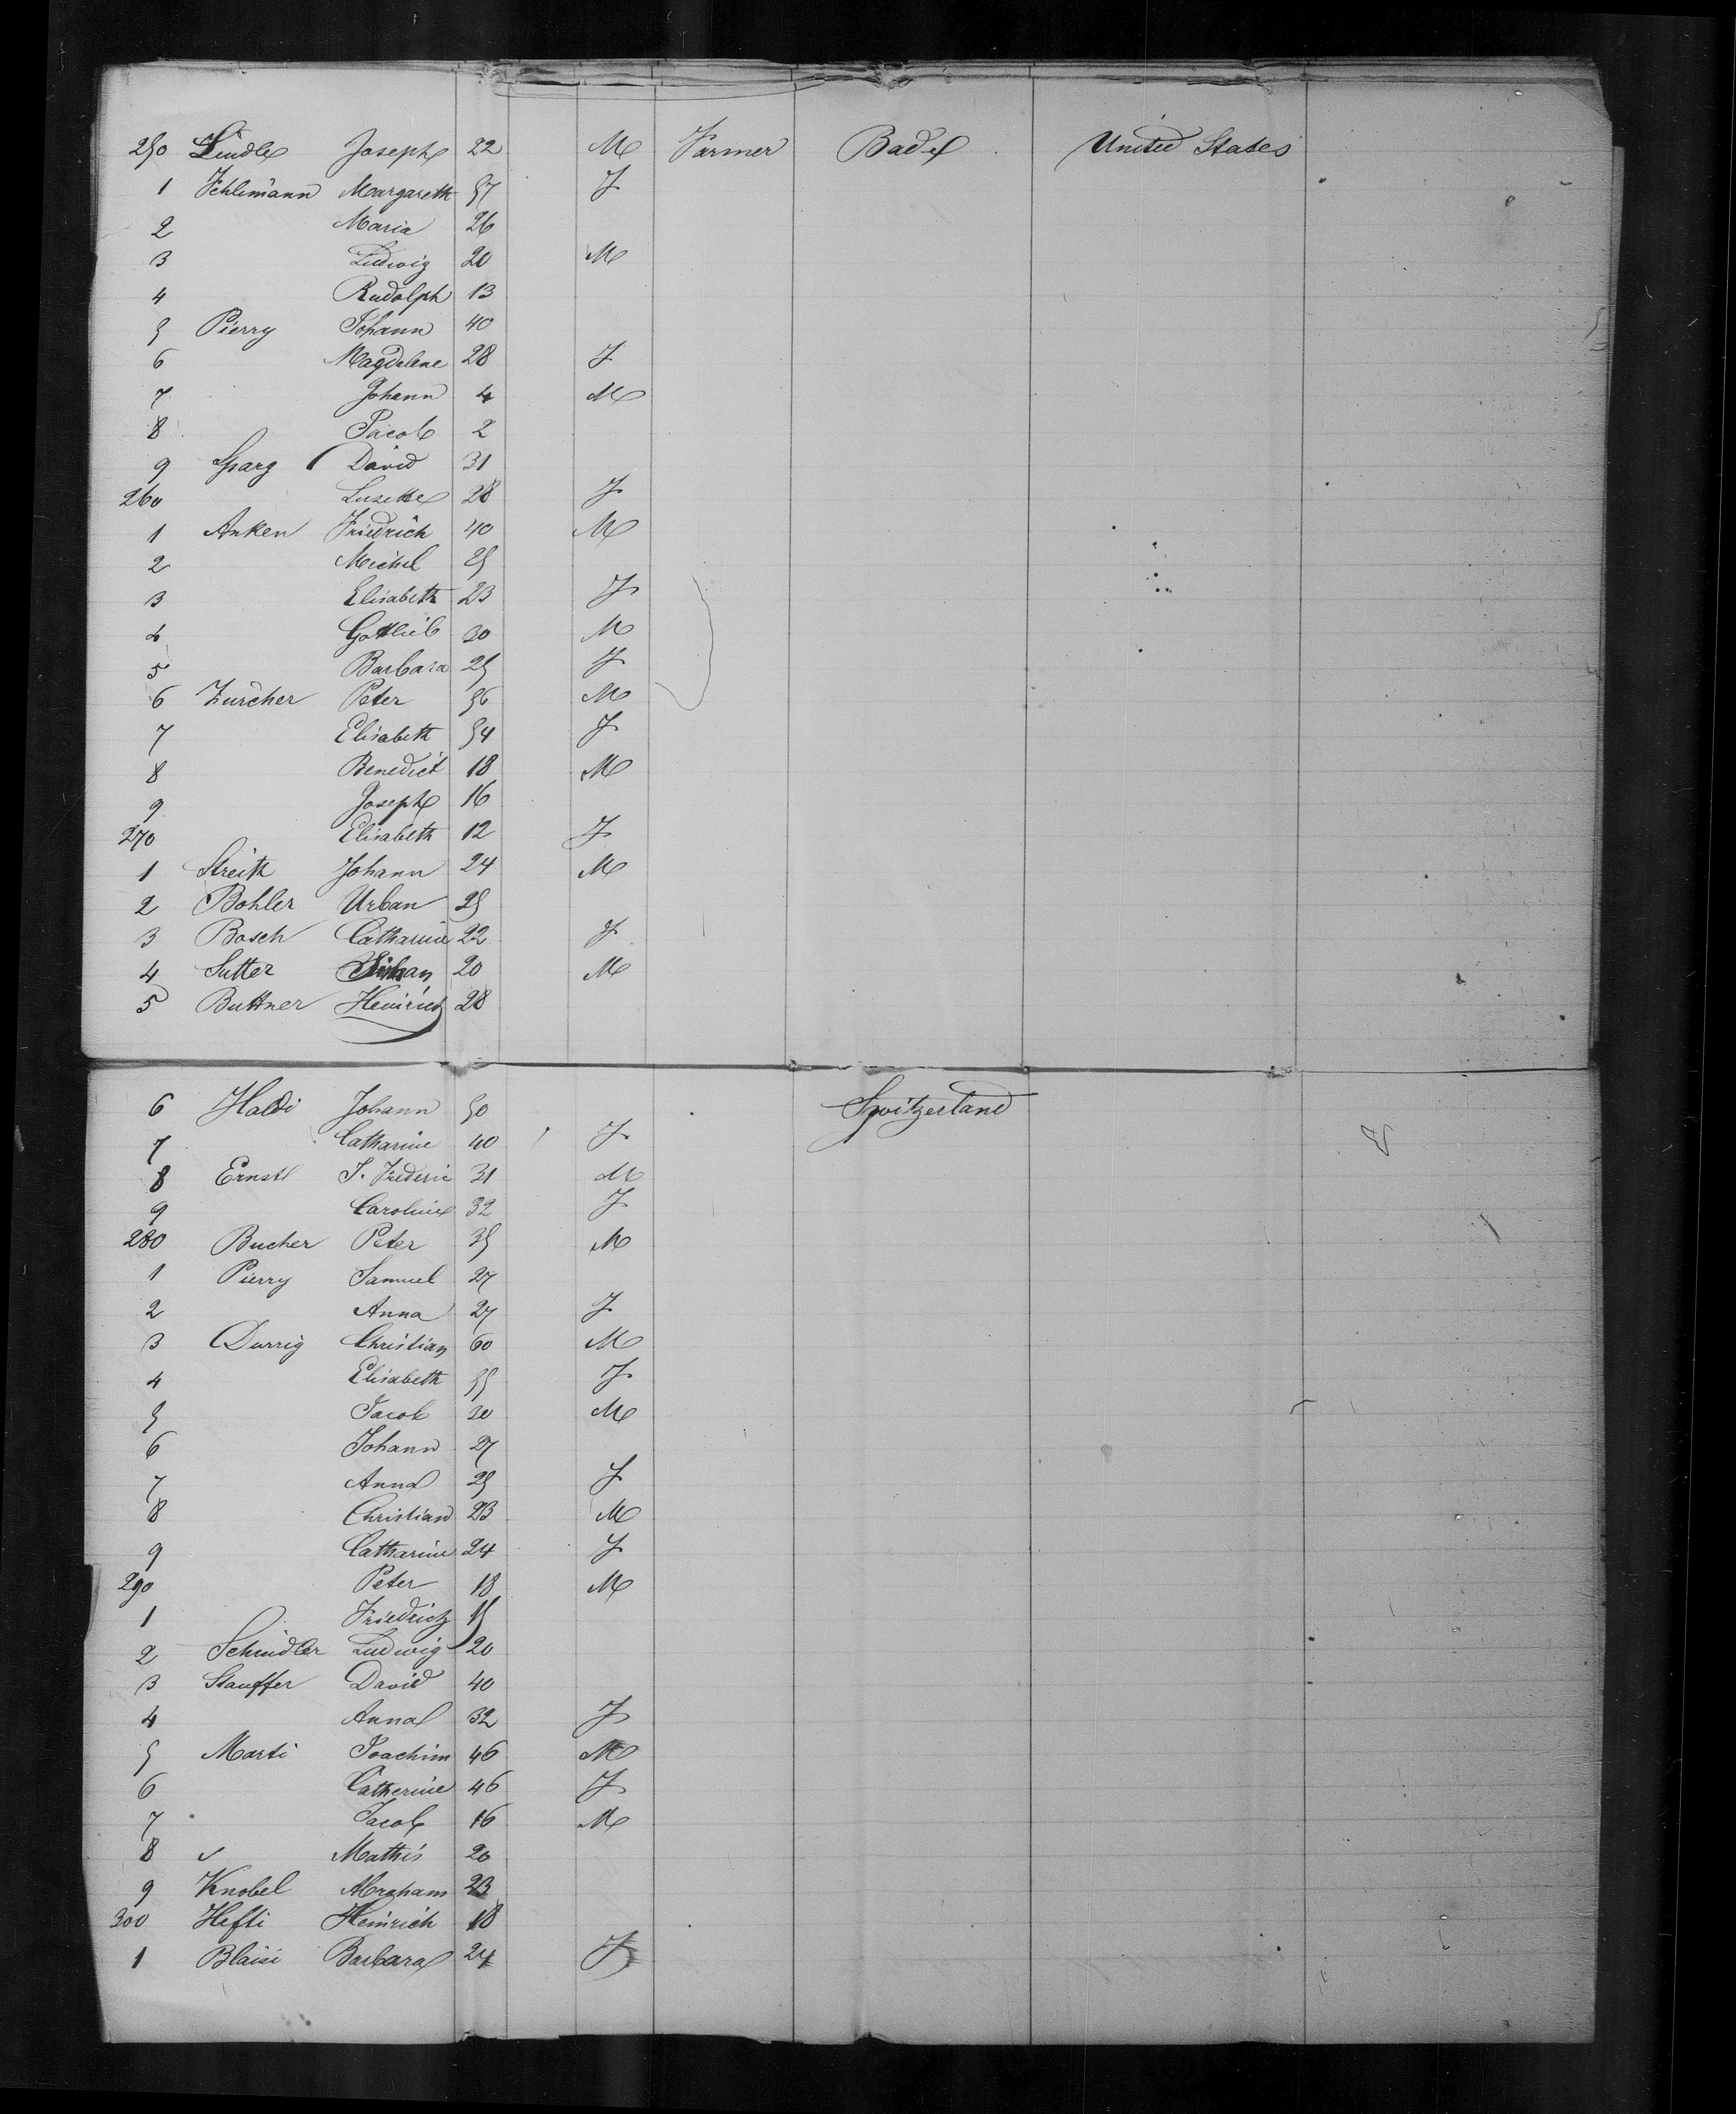 250 Lindle Joseph 22 M Farmer Badel United States
1 Fehlimann Margareth 57 F
2 Maria 26
3 Ludwig 20 M
4 Rudolph 13
5 Pierry Johann 40
6 Magdalene 28 F
7 Johann 4 M
8 Jacob 2
9 Sparg David 31
260 Lusette 28 F
1 Anken Friedrich 40 M
2 Michel 25
3 Elisabeth 23 F
4 Gottlieb 30 M
5 Barbara 25 F
6 Zurcher Peter 56 M
7 Elisabeth 54 F
8 Benedict 18 M
9 Joseph 16
270 Elisabeth 12 F
1 Streith Johann 24 M
2 Bohler Urban 25
3 Bosch Catharine 22 F
4 Sutter 20 M
5 Buttner Heinrich 28
6 Haldi Johann 50 Switzerland
7 Catharine 40 F
8 Ernst J. Frederic 31 M
9 Caroline 32 F
280 Bucher Peter 35 M
1 Pierry Samuel 27
2 Anna 27 F
3 Durrig Christian 60 M
4 Elisabeth 55 F
5 Jacob 30 M
6 Johann 27
7 Anna 25 F
8 Christian 23 M
9 Catharine 24 F
290 Peter 18 M
1 Friedrich 15
2 Schindler Ludwig 20
3 Stauffer David 40
4 Anna 32 F
5 Marti Joachim 46 M
6 Catherine 46 F
7 Jacob 16 M
8 Mathis 20
9 Knobel Abraham 23
300 Hefti Heinrich 18
1 Blaisi Barbara 24 F